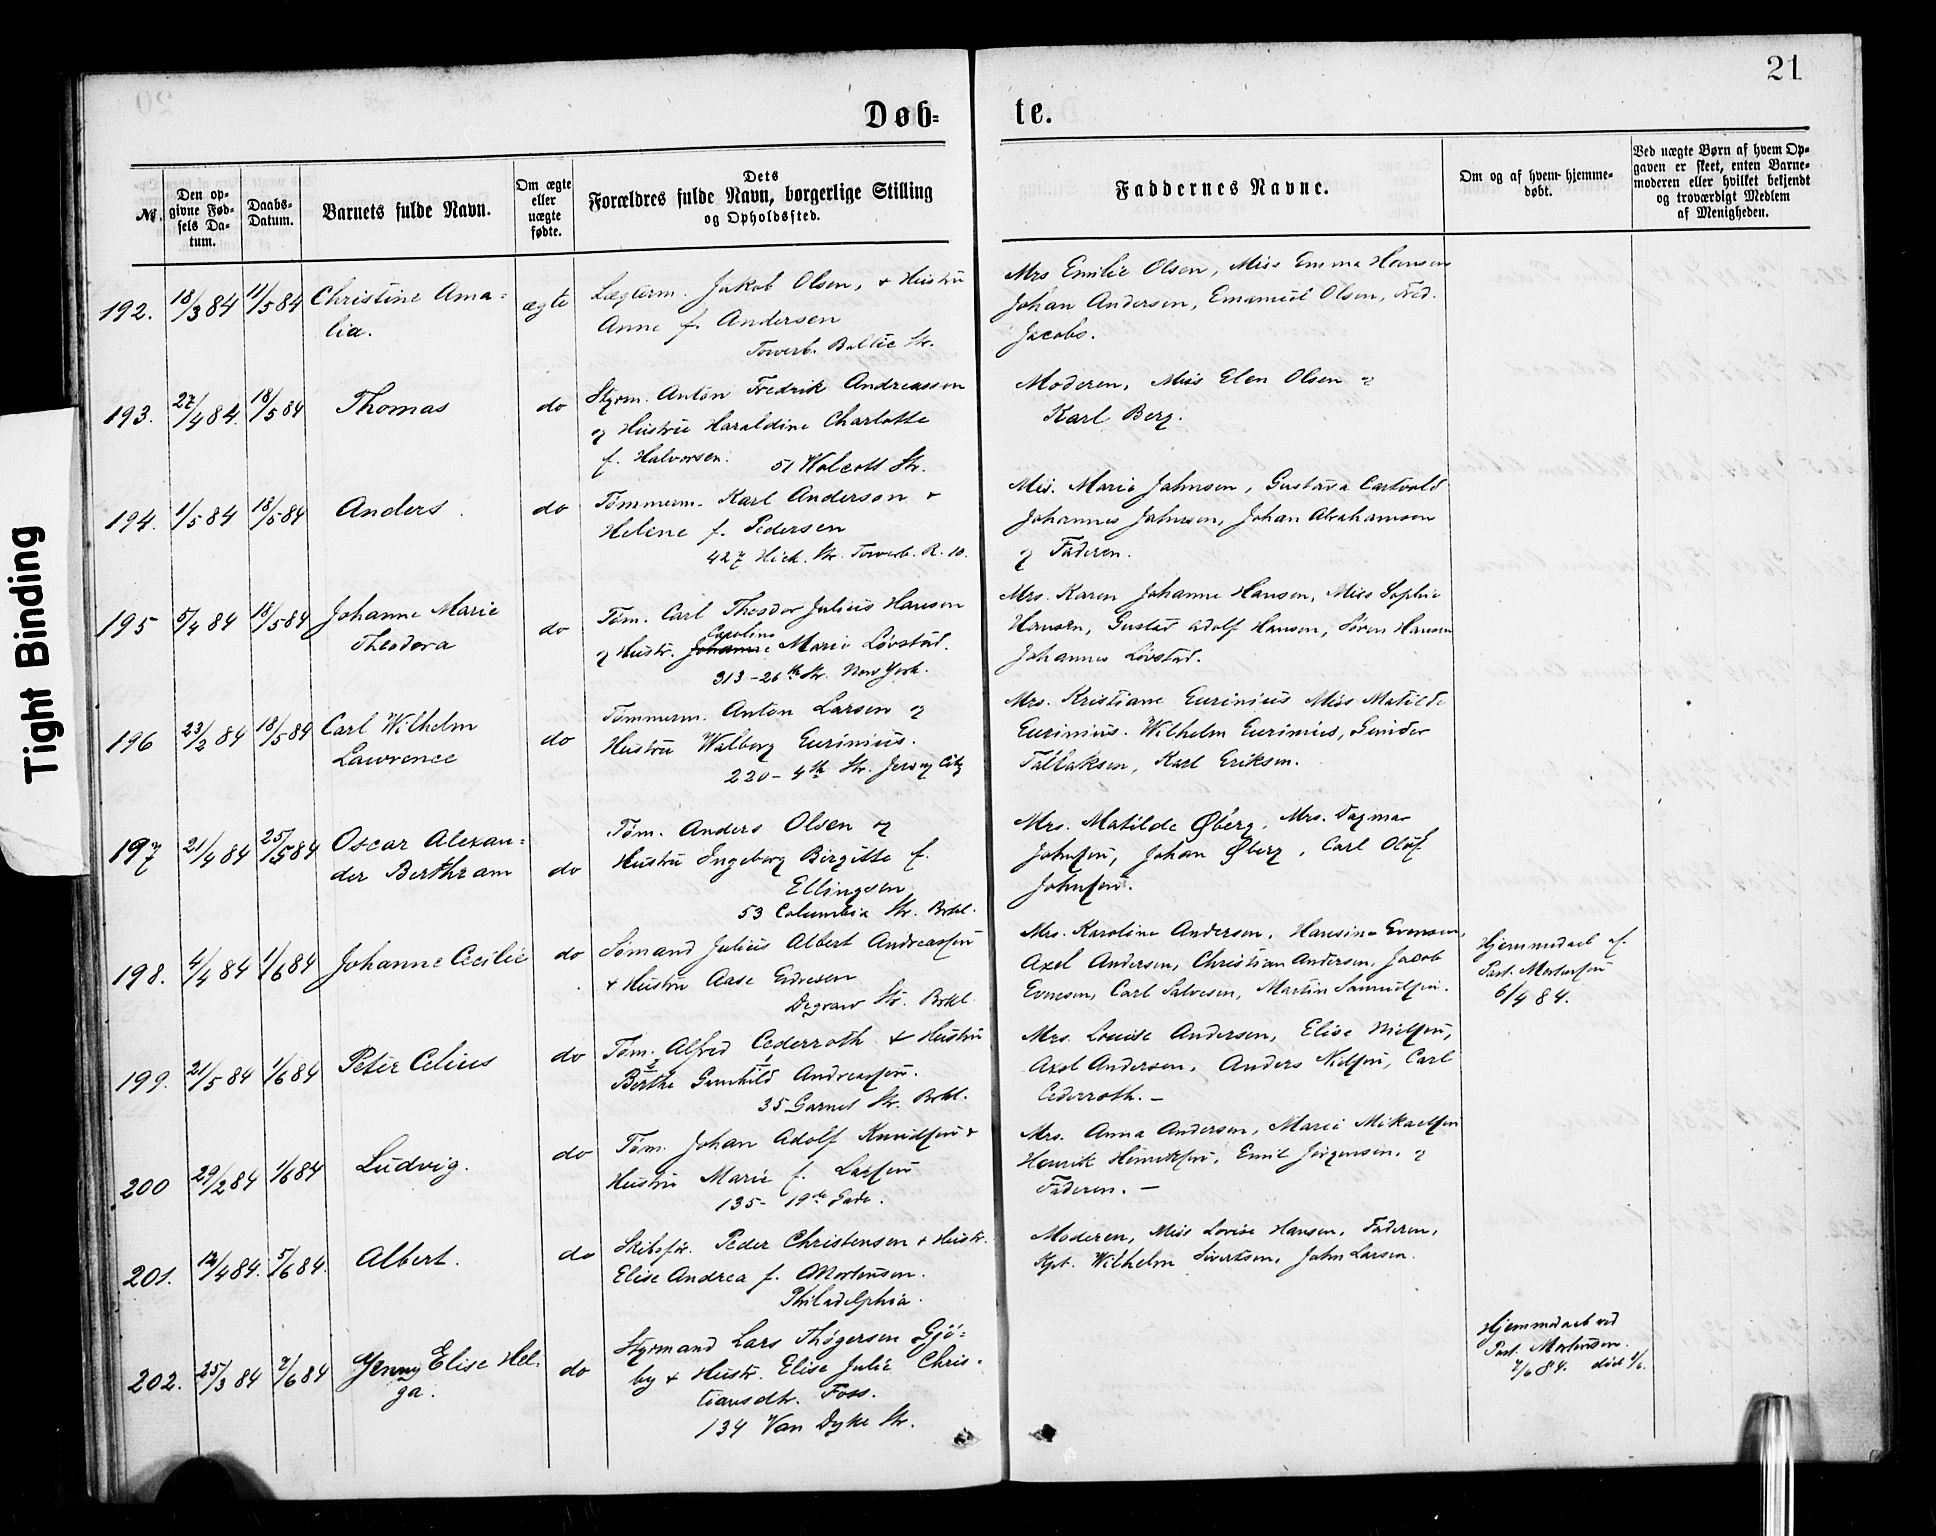 21
Døb=
te.
No.
Den op-
givne Fød-
sels Da-
tum.
Daabs-
Datum.
Barnets fulde Navn.
Om ægte
eller
uægte
fødte.
Dets
Forældres fulde Navn, borgerlige Stilling
og Opholdssted.
Faddernes Navne.
Om og af hvem hjemme-
døbt.
Ved uægte Børn af hvem Op-
gaven er skeet, enten Barne-
moderen eller hvilket bekjendt
og troværdigt Medlem
af Menigheden.
192.
18/3 84
11/5 84
Christine Ama=
lia.
ægte
Jakob Olsen, + Hustru
Anne f. Andersen
Baltic Str.
Mrs Emilie Olsen, Miss Emma Hansen
Johan Andersen, Emanuel Olsen, Fred.
Jacobs.
193.
27/4 84.
18/5 84
Thomas
do
Styrm. Anton Fredrik Andreassen
og Hustru Haraldine Charlotte
f. Halvorsen.
51 Wolcott Str.
Moderen, Miss Elen Olsen og
Karl Berg.
194.
1/5 84
18/5 84
Anders.
do
Tømmerm. Karl Anderson +
Helene f. Pedersen
427 Hick. Str. R. 10.
Marie Johnsen, Gustava
Johannes Johnsen, Johan Abrahamsen
og Faderen.
195
5/4 84
18/5 84
Johanne Marie
Theodora
do
Tøm. Carl Theodor Julius Hansen
Caroline
og Hustr. Johanne Marie Løvstad.
313 - 26th Str. New York.
Mrs. Karen Johanne Hansen, Miss Sophie
Hansen, Gustav Adolf Hansen, Søren Hansen
Johannes Løvstad.
196
23/2 84
18/5 84
Carl Wilhelm
Lawrence
do
Tømmerm. Anton Larsen og
Hustru Walborg Eurinius.
220 - 4th Str. Jersey City
Mrs. Kristiane Eurinius Miss Matilde
Eurinius. Wilhelm Eurinius, Gunder
Tallaksen, Karl Eriksen.
197
21/4 84
25/5 84
Oscar Alexan=
der Berthram
do
Tøm. Anders Olsen og
Hustru Ingeborg Birgitte f.
Ellingsen
53 Columbia Str. Brkl.
Mrs. Matilde Øberg, Mrs. Dagmar
Johnsen, Johan Øberg, Carl Oluf
Johnsen.
198.
4/4 84
1/6 84
Johanne Cecilie
do
Sømand Julius Albert Andreassen
+ Hustru Aase Endresen
Degraw Str. Brkl.
Mrs. Karoline Andersen, Hansine Evensen,
Axel Andersen, Christian Andersen, Jacob
Evensen, Carl Salvesen, Martin Samuelsen.
Hjemmedøbt af
Past. Mortensen
6/4 84.
199.
21/5 84
1/6 84
Peter Celius
do
Tøm. Alfred Cederroth + Hustru
Berthe Gunhild Andreassen.
35 Garnet Str. Brkl.
Mrs. Louise Andersen, Elise Nielsen,
Axel Andersen, Anders Nielsen, Carl
Cederroth. —
200
29/2 84
1/6 84
Ludvig.
do
Tøm. Johan Adolf Knudsen +
Hustru Marie f. Larsen
135 - 19de Gade.
Mrs. Anna Andersen, Marie Mikaelsen
Henrik Henriksen, Emil Jørgensen, og
Faderen. —
201.
12/4 84.
5/6 84.
Albert.
do
Skibsfør. Peder Christensen + Hustr.
Elise Andrea f. Mortensen.
Philadelphia.
Moderen, Miss Lovise Hansen, Faderen,
Kpt. Wilhelm Sivertsen, John Larsen.
202.
25/3 84
7/6 84
Jenny Elise Hel-
ga.
do
Styrmand Lars Thøgersen Gjø=
by + Hustr. Elise Julie Chris-
tiansdtr. Foss.
134 Van Dyke Str.
Hjemmedøbt ved
Past. Mortensen.
7/6 84.
Tight Binding